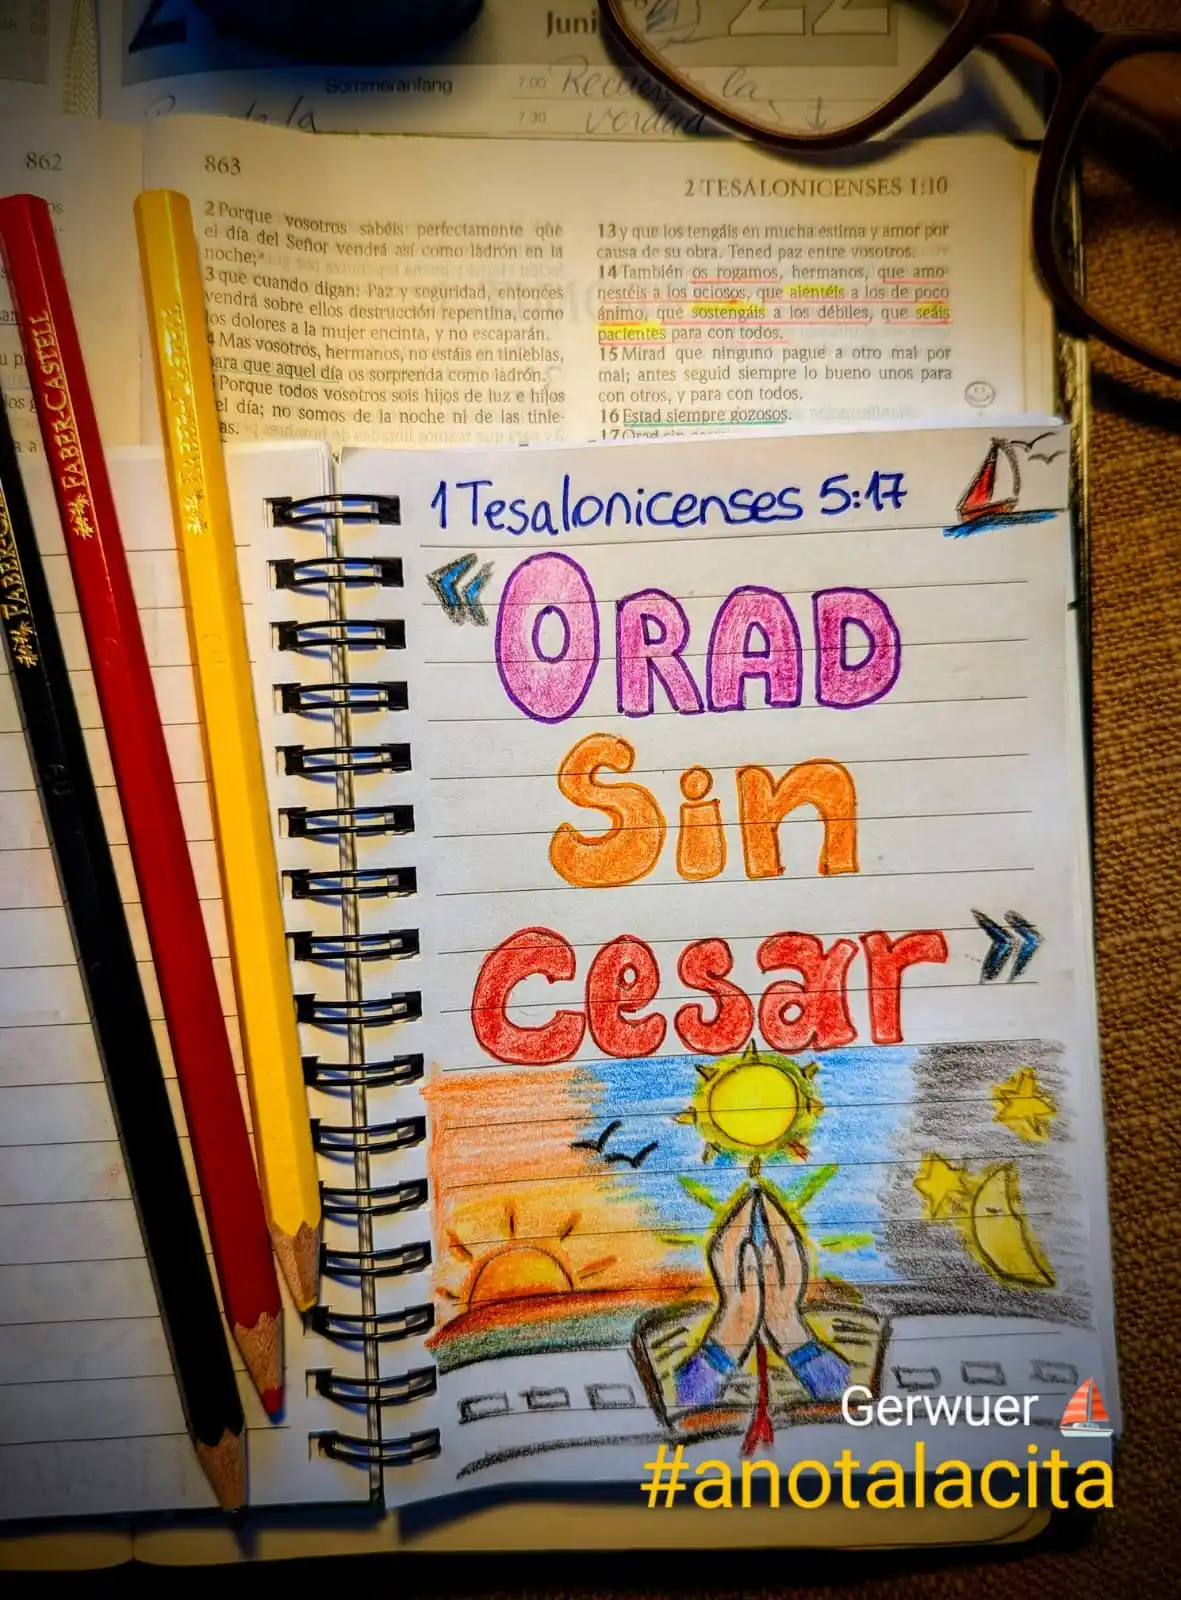 Juni
22
Sommeranfang
7.00 Recuerda la
7.30 verdad
862
863
2 TESALONICENSES 1:10
2 Porque vosotros sabéis perfectamente que
el día del Señor vendrá así como ladrón en la
noche;
3 que cuando digan: Paz y seguridad, entonces
vendrá sobre ellos destrucción repentina, como
los dolores a la mujer encinta, y no escaparán.
4 Mas vosotros, hermanos, no estáis en tinieblas,
para que aquel día os sorprenda como ladrón.
Porque todos vosotros sois hijos de luz e hijos
el día; no somos de la noche ni de las tinie-
as.
13 y que los tengáis en mucha estima y amor por
causa de su obra. Tened paz entre vosotros.
14 También os rogamos, hermanos, que amo-
nestéis a los ociosos, que alentéis a los de poco
ánimo, que sostengáis a los débiles, que seáis
pacientes para con todos.
15 Mirad que ninguno pague a otro mal por
mal; antes seguid siempre lo bueno unos para
con otros, y para con todos.
16 Estad siempre gozosos.
17 Orad sin
FABER-CASTELL
FABER-CASTELL
FABER-CASTELL
1 Tesalonicenses 5:17
«ORAD
Sin
cesar»
Gerwuer
#anotalacita